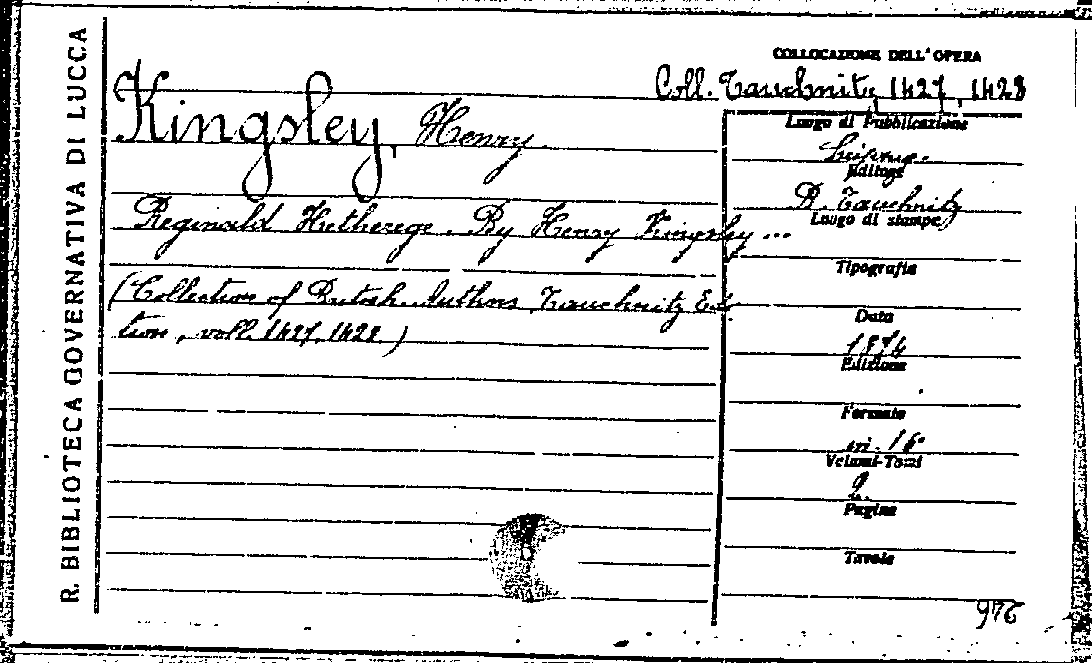 R. BIBLIOTECA GOVERNATIVA DI LUCCA
COLLOCAZIONE DELL'OPERA
Coll. Tauchnitz, 1427, 1428
Kingsley, Henry
Reginald Hetherege. By Henry Kingsley ...
(Collection of British Authors Tauchnitz Edi-
tion, voll. 1427, 1428)
Luogo di Pubblicazione
Editore
B. Tauchnitz
Luogo di stampa
Tipografia
Data
1874
Edizione
Formato
in. 16°
Volumi-Tomi
2.
Pagine
Tavole
976